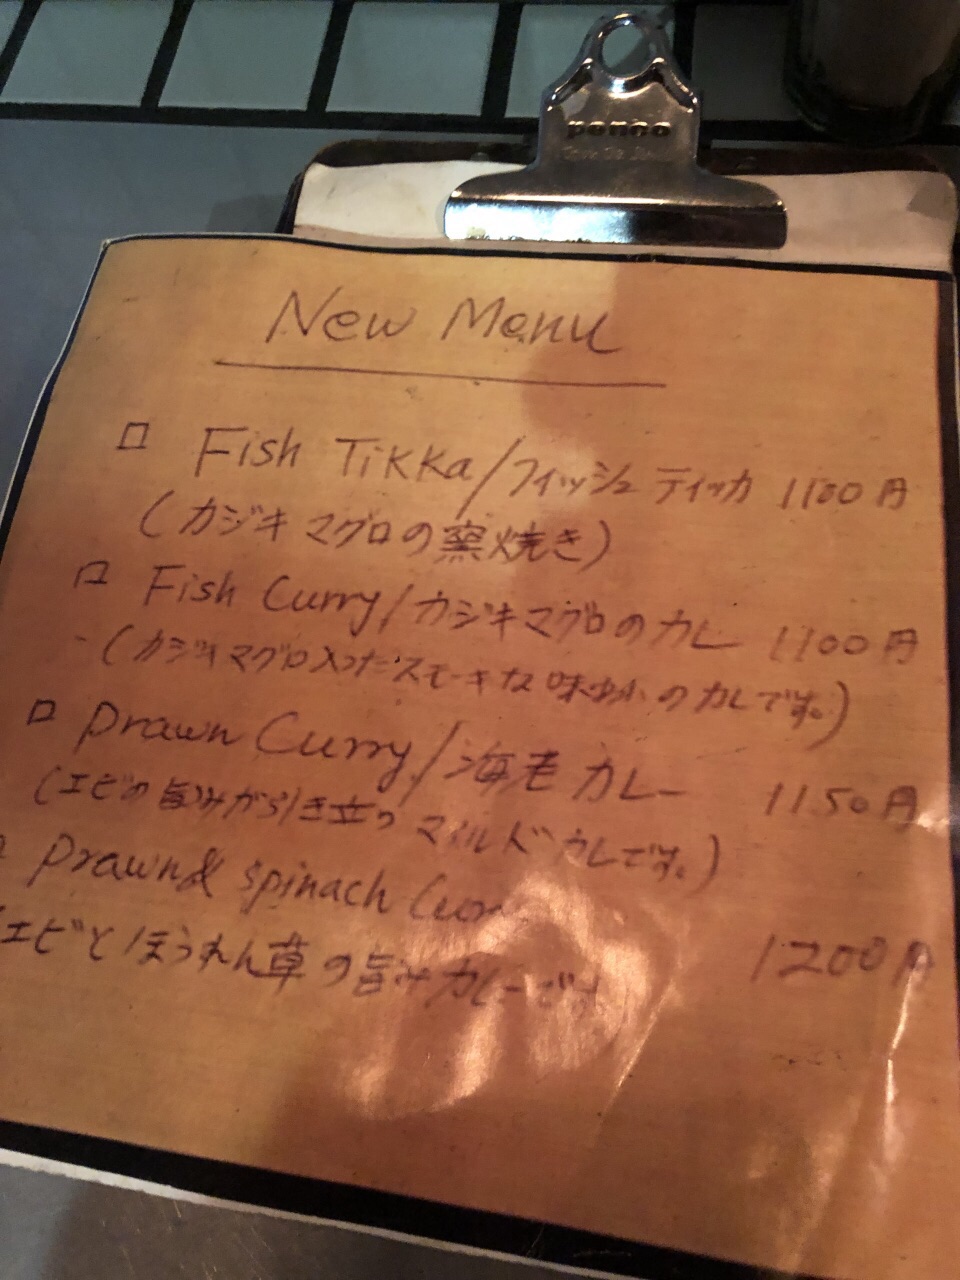 penco
New Menu
□ Fish Tikka/フィッシュ ティッカ 1100円
(カジキマグロの窯焼き)
□ Fish Curry/カジキマグロのカレー 1100円
(カジキマグロ入ったスモーキな味わいのカレです。)
□ Prawn Curry/海老カレー 1150円
(エビの旨みが引き立つ マイルドカレです。)
□ Prawn & spinach 1200円
(エビとほうれん草の旨みカレーです